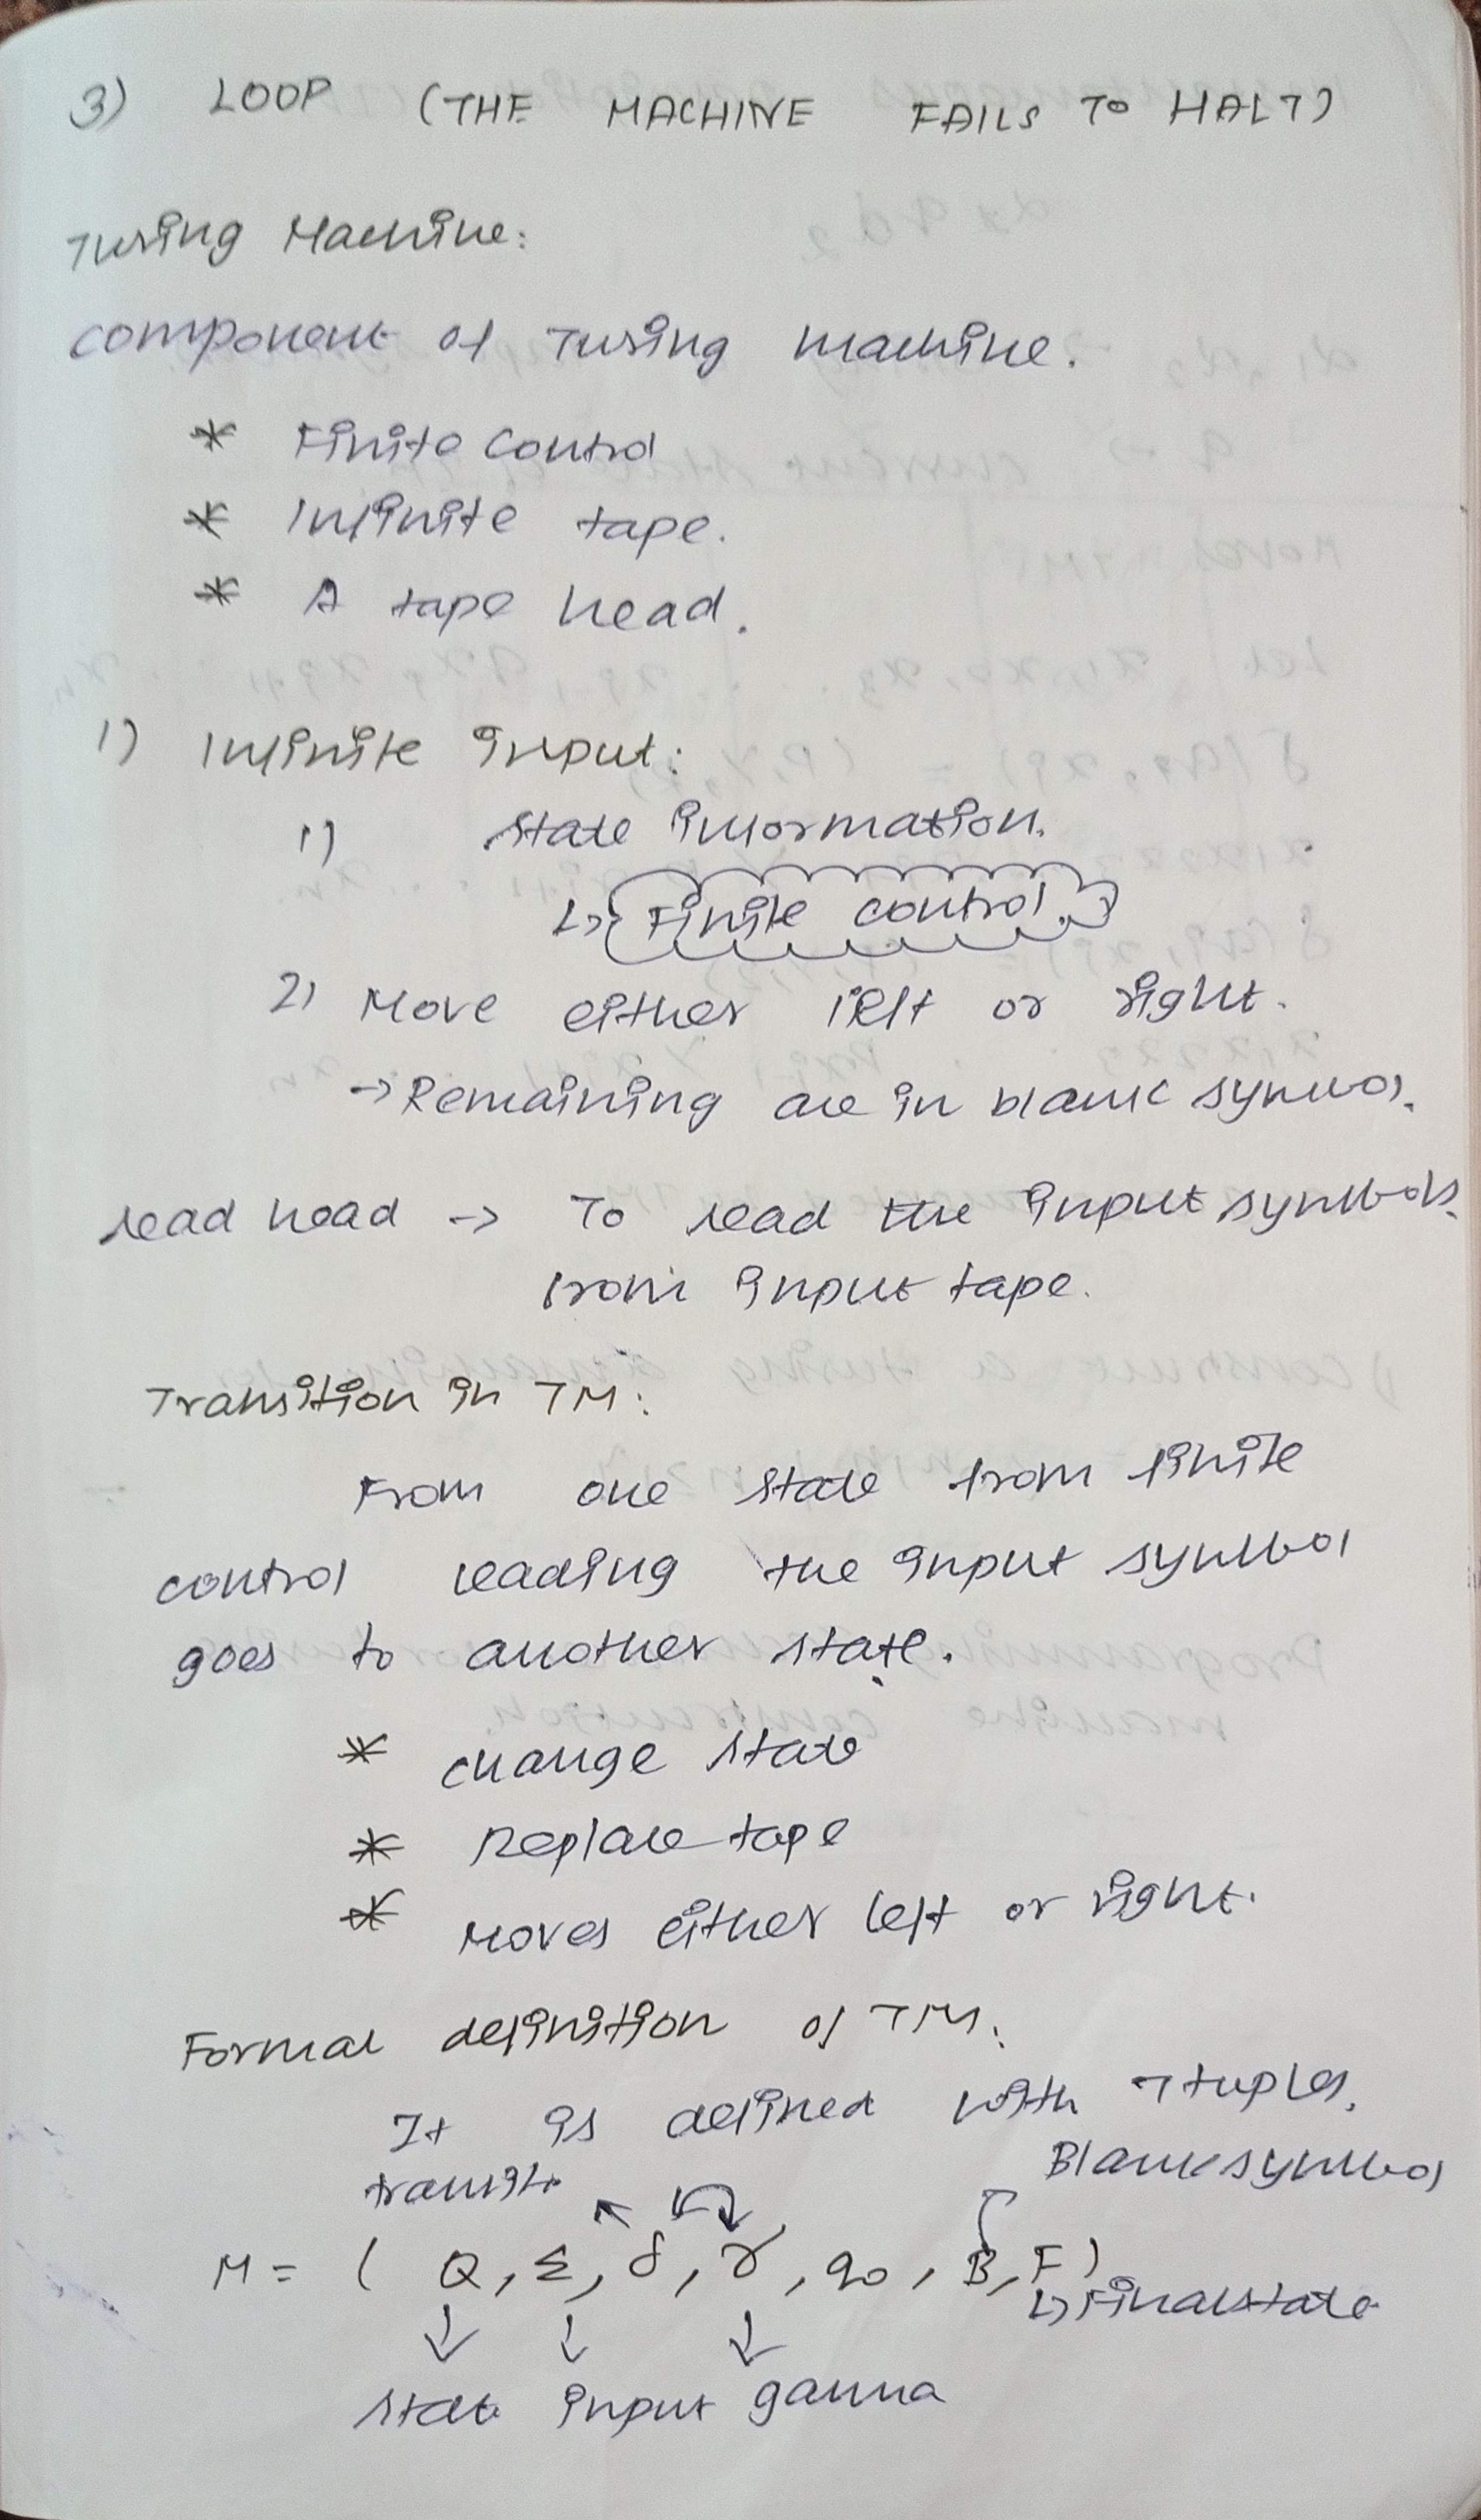 3) LOOP (THE MACHINE FAILS TO HALT)
Turing Machine:
component of Turing machine.
* Finite Control
* Infinite tape.
* A tape head.
1) Infinite input:
1) State information.
↳ Finite control.
2) Move either left or right.
→ Remaining are in blank symbol.
read head → To read the input symbols
from input tape.
Transition in TM:
From one state from finite
control reading the input symbol
goes to another state.
* change state
* Replace tape
* Moves either left or right.
Formal definition of TM:
It is defined with 7 tuples.
Blank symbol
M = ( Q, Σ, δ, γ, q0, B, F )
↳ Final state
state input gamma